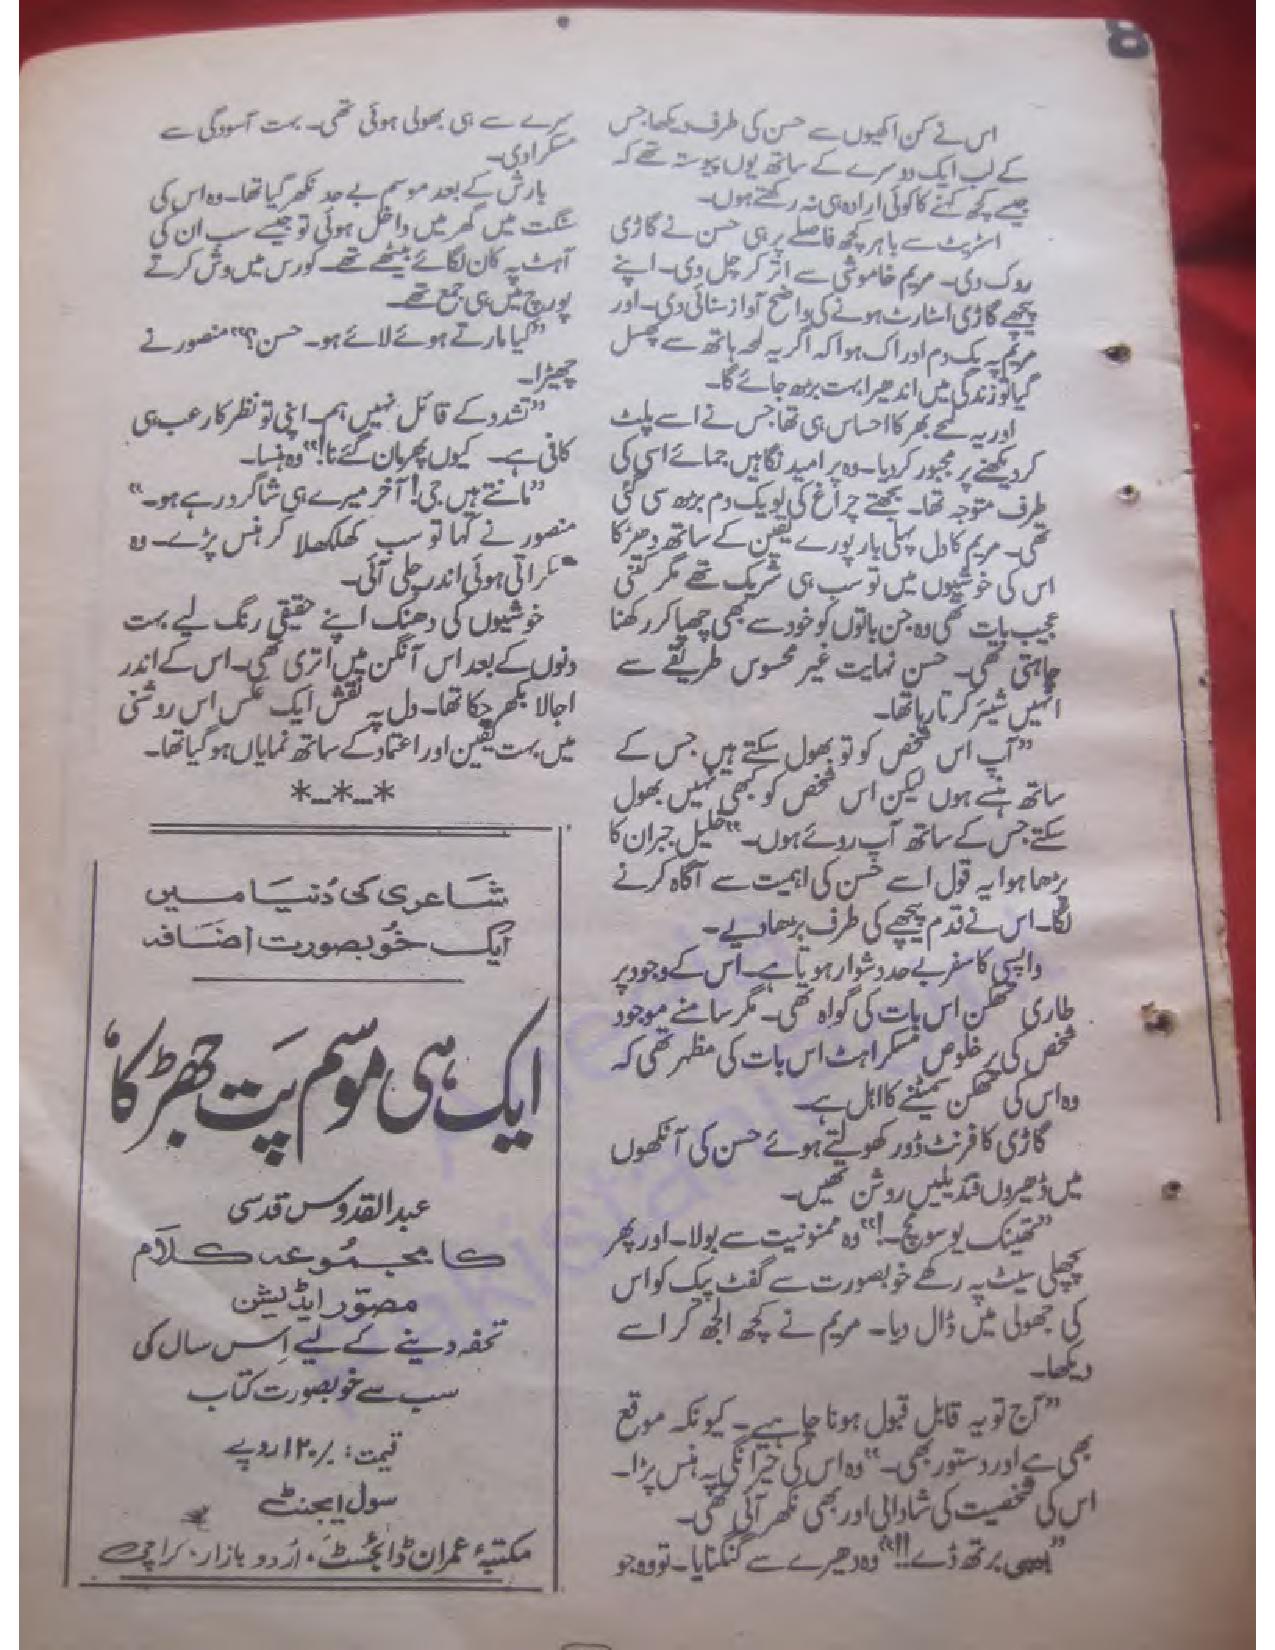 8
اس نے کن اکھیوں سے حسن کی طرف دیکھا جس
کے لب ایک دوسرے کے ساتھ یوں پیوستہ تھے کہ
جیسے کچھ کہنے کا کوئی ارادہ ہی نہ رکھتے ہوں۔
اسٹریٹ سے باہر کچھ فاصلے پر ہی حسن نے گاڑی
روک دی۔ مریم خاموشی سے اتر کر چل دی۔ اپنے
پیچھے گاڑی اسٹارٹ ہونے کی واضح آواز سنائی دی۔ اور
مریم پہ یک دم ادراک ہوا کہ اگر یہ لمحہ ہاتھ سے پھسل
گیا تو زندگی میں اندھیرا بہت بڑھ جائے گا۔
اور یہ لمحے بھر کا احساس ہی تھا جس نے اسے پلٹ
کر دیکھنے پر مجبور کر دیا۔ وہ پر امید نگاہیں جمائے اسی کی
طرف متوجہ تھا۔ بجھتے چراغ کی لو یک دم بڑھ سی گئی
تھی۔ مریم کا دل پہلی بار پورے یقین کے ساتھ دھڑکا
اس کی خوشیوں میں تو سب ہی شریک تھے مگر کتنی
عجیب بات تھی وہ جن باتوں کو خود سے بھی چھپا کر رکھنا
چاہتی تھی۔ حسن نہایت غیر محسوس طریقے سے
انہیں شیئر کرتا رہا تھا۔
”آپ اس شخص کو تو بھول سکتے ہیں جس کے
ساتھ ہنسے ہوں لیکن اس شخص کو کبھی نہیں بھول
سکتے جس کے ساتھ آپ روئے ہوں۔“ خلیل جبران کا
پڑھا ہوا یہ قول اسے حسن کی اہمیت سے آگاہ کرنے
لگا۔ اس نے قدم پیچھے کی طرف بڑھا دیے۔
واپسی کا سفر بے حد دشوار ہوتا ہے۔ اس کے وجود پر
طاری تھکن اس بات کی گواہ تھی۔ مگر سامنے موجود
شخص کی پر خلوص مسکراہٹ اس بات کی مظہر تھی کہ
وہ اس کی تھکن سمیٹنے کا اہل ہے۔
گاڑی کا فرنٹ ڈور کھولتے ہوئے حسن کی آنکھوں
میں ڈھیروں قندیلیں روشن تھیں۔
”تھینک یو سو مچ۔!“ وہ ممنونیت سے بولا۔ اور پھر
پچھلی سیٹ پہ رکھے خوبصورت سے گفٹ پیک کو اس
کی جھولی میں ڈال دیا۔ مریم نے کچھ الجھ کر اسے
دیکھا۔
”آج تو یہ قابل قبول ہونا چاہیے۔ کیونکہ موقع
بھی ہے اور دستور بھی۔“ وہ اس کی حیرانگی پہ ہنس پڑا۔
اس کی شخصیت کی شادابی اور بھی نکھر آئی تھی۔
”ہیپی برتھ ڈے!!“ وہ دھیرے سے گنگنایا۔ تو وہ جو
سرے سے ہی بھولی ہوئی تھی۔ بہت آسودگی سے
مسکرا دی۔
بارش کے بعد موسم بے حد نکھر گیا تھا۔ وہ اس کی
سنگت میں گھر میں داخل ہوئی تو جیسے سب ان کی
آہٹ پہ کان لگائے بیٹھے تھے۔ کورس میں وش کرتے
پورچ میں ہی جمع تھے۔
”کیا مارتے ہوئے لائے ہو۔ حسن؟“ منصور نے
چھیڑا۔
”تشدد کے قائل نہیں ہم۔ اپنی تو نظر کا رعب ہی
کافی ہے۔ کیوں پھر مان گئے نا!“ وہ ہنسا۔
”مانتے ہیں جی! آخر میرے ہی شاگرد رہے ہو۔“
منصور نے کہا تو سب کھلکھلا کر ہنس پڑے۔ وہ
مسکراتی ہوئی اندر چلی آئی۔
خوشیوں کی دھنک اپنے حقیقی رنگ لیے بہت
دنوں کے بعد اس آنگن میں اتری تھی۔ اس کے اندر
اجالا بکھر چکا تھا۔ دل پہ نقش ایک عکس اس روشنی
میں بہت یقین اور اعتماد کے ساتھ نمایاں ہو گیا تھا۔
*--*--*
شاعری کی دُنیا میں
ایک خُوبصورت اضافہ
ایک ہی موسم پَت جھڑ کا
عبدالقدوس قدسی
کا مجموعہ کلام
مصوّر ایڈیشن
تحفہ دینے کے لیے اِس سال کی
سب سے خوبصورت کتاب
قیمت: ۱۲۰/ روپے
سول ایجنٹ
مکتبۂ عمران ڈائجسٹ، اُردو بازار، کراچی